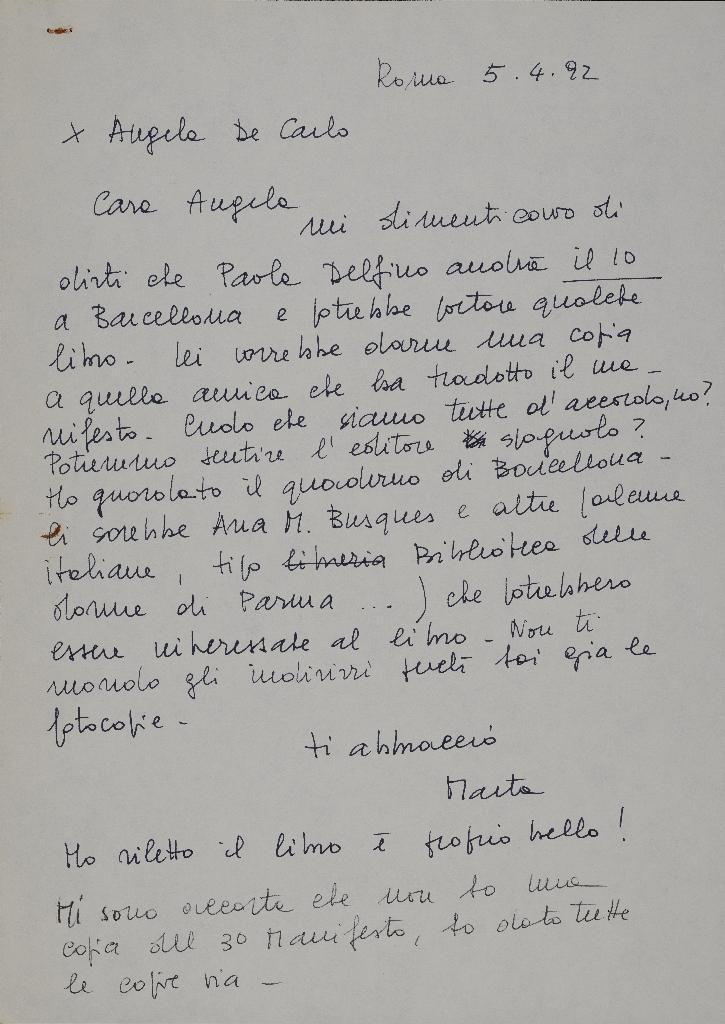 Roma 5.4.92
x Angela De Carlo
Cara Angela
mi dimenticavo di
dirti che Paola Delfino andrà il 10
a Barcellona e potrebbe portare qualche
libro - Lei vorrebbe darne una copia
a quella amica che ha tradotto il ma-
nifesto - Credo che siamo tutte d'accordo, no?
Potremmo sentire l'editore spagnolo?
Ho guardato il quaderno di Barcellona -
Ci sarebbe Ana M. Busques e altre (alcune
italiane, tipo libreria Biblioteca delle
donne di Parma ...) che potrebbero
essere interessate al libro - Non ti
mando gli indirizzi perché hai già le
fotocopie -
ti abbraccio
Marta
Ho riletto il libro è proprio bello!
Mi sono accorta che non ho una
copia del 3º Manifesto, ho dato tutte
le copie via -